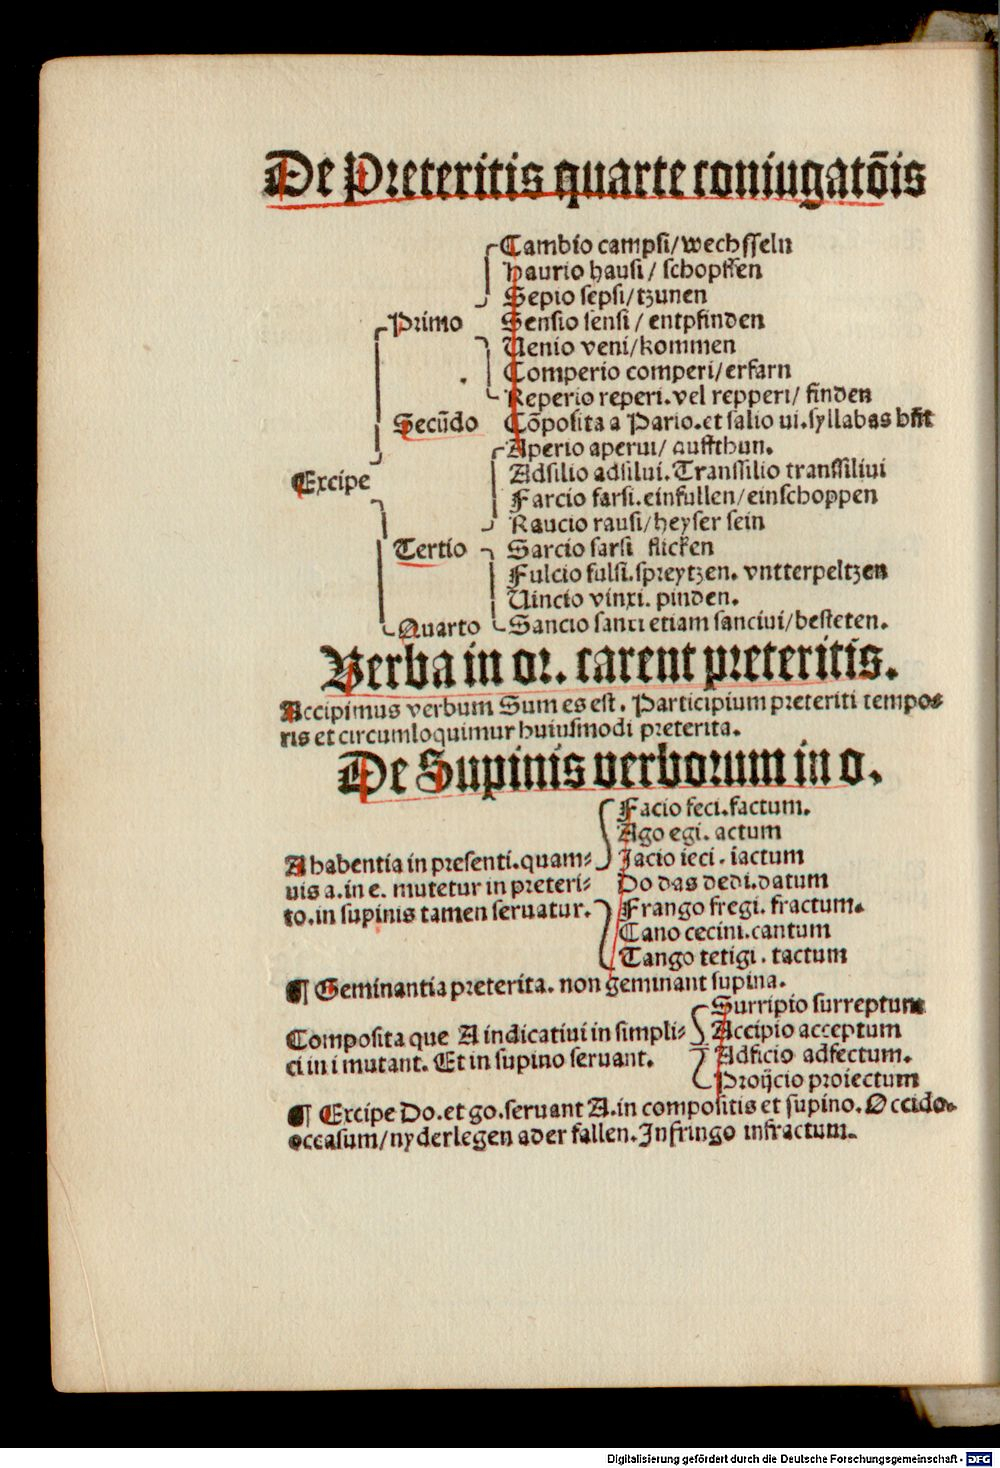 De Preteritis quarte coniugatōis
Cambio campsi/wechsseln
Haurio hausi/ schopffen
Sepio sepsi/tzunen
Primo
Sensio sensi / entpfinden
Uenio veni/kommen
Comperio comperi/erfarn
Reperio reperi.vel repperi/ finden
Secūdo
Cōposita a Pario.et salio ui.syllabas hn̄t
Aperio aperui/ auffthun.
Adsilio adsilui.Transsilio transsiliui
Excipe
Farcio farsi.einfullen/einschoppen
Raucio rausi/heyser sein
Tertio
Sarcio sarsi flicken
Fulcio fulsi.spreytzen. vntterpeltzen
Uincio vinxi. pinden.
Quarto
Sancio sanxi etiam sanciui/besteten.
Verba in or. carent preteritis.
Accipimus verbum Sum es est. Participium preteriti tempo⸗
ris et circumloquimur huiusmodi preterita.
De Supinis verborum in o.
Facio feci.factum.
Ago egi. actum
A habentia in presenti.quam⸗
Jacio ieci. iactum
uis a. in e. mutetur in preteri⸗
Do das dedi.datum
to.in supinis tamen seruatur.
Frango fregi. fractum.
Cano cecini.cantum
Tango tetigi. tactum
¶ Geminantia preterita. non geminant supina.
Surripio surreptum
Composita que A indicatiui in simpli⸗
Accipio acceptum
ci in i mutant. Et in supino seruant.
Adficio adfectum.
Proijcio proiectum
¶ Excipe Do.et go.seruant A.in compositis et supino. Occido.
occasum/nyderlegen ader fallen.Infringo infractum.
Digitalisierung gefördert durch die Deutsche Forschungsgemeinschaft - DFG